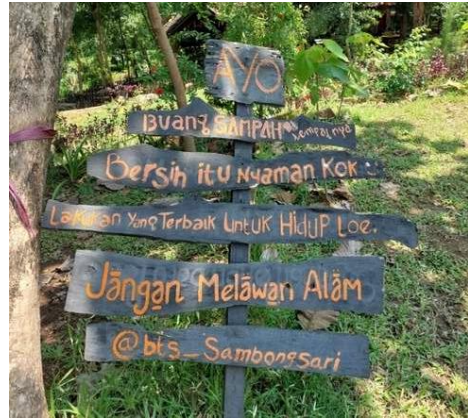 AYO
Buang SAMPAH Pd Tempatnya
Bersih itu Nyaman Kok
Lakukan Yang Terbaik Untuk Hidup Loe.
Jāngan Melāwan Alām
@bts_Sambongsari